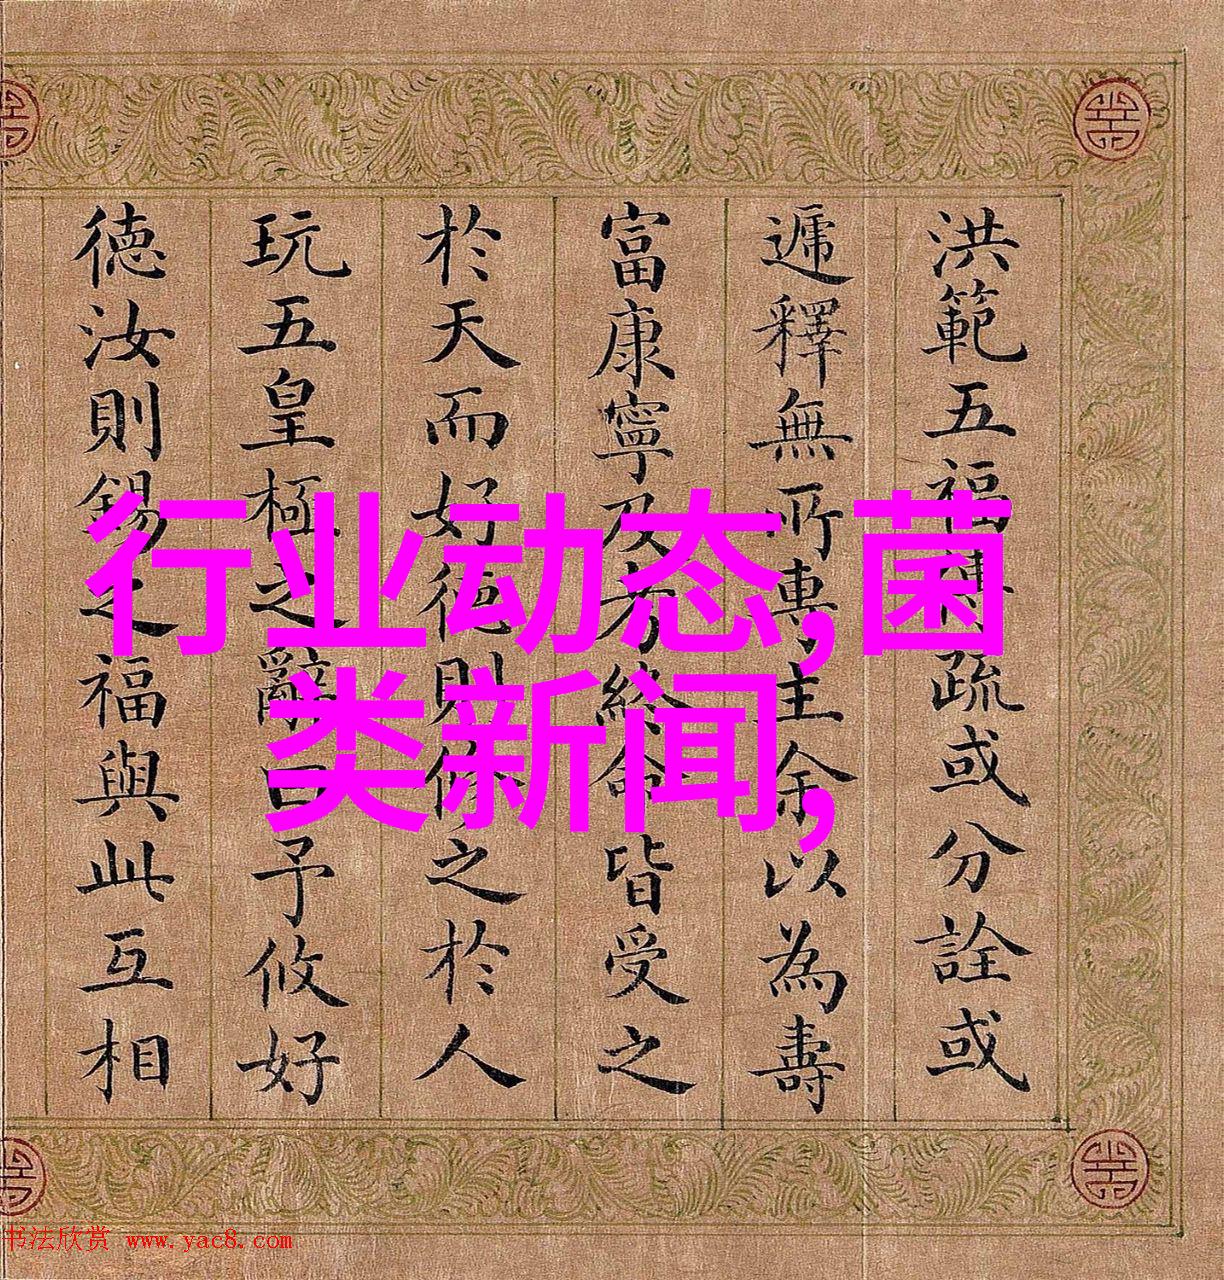 洪範五福傳疏或分詮或
遞釋無所專主余以為壽
富康寧及考終命皆受之
於天而好德則修之於人
玩五皇極之辭曰予攸好
德汝則錫之福與此互相
行业动态,菌
类新闻,
书法欣赏 www.yac8.com